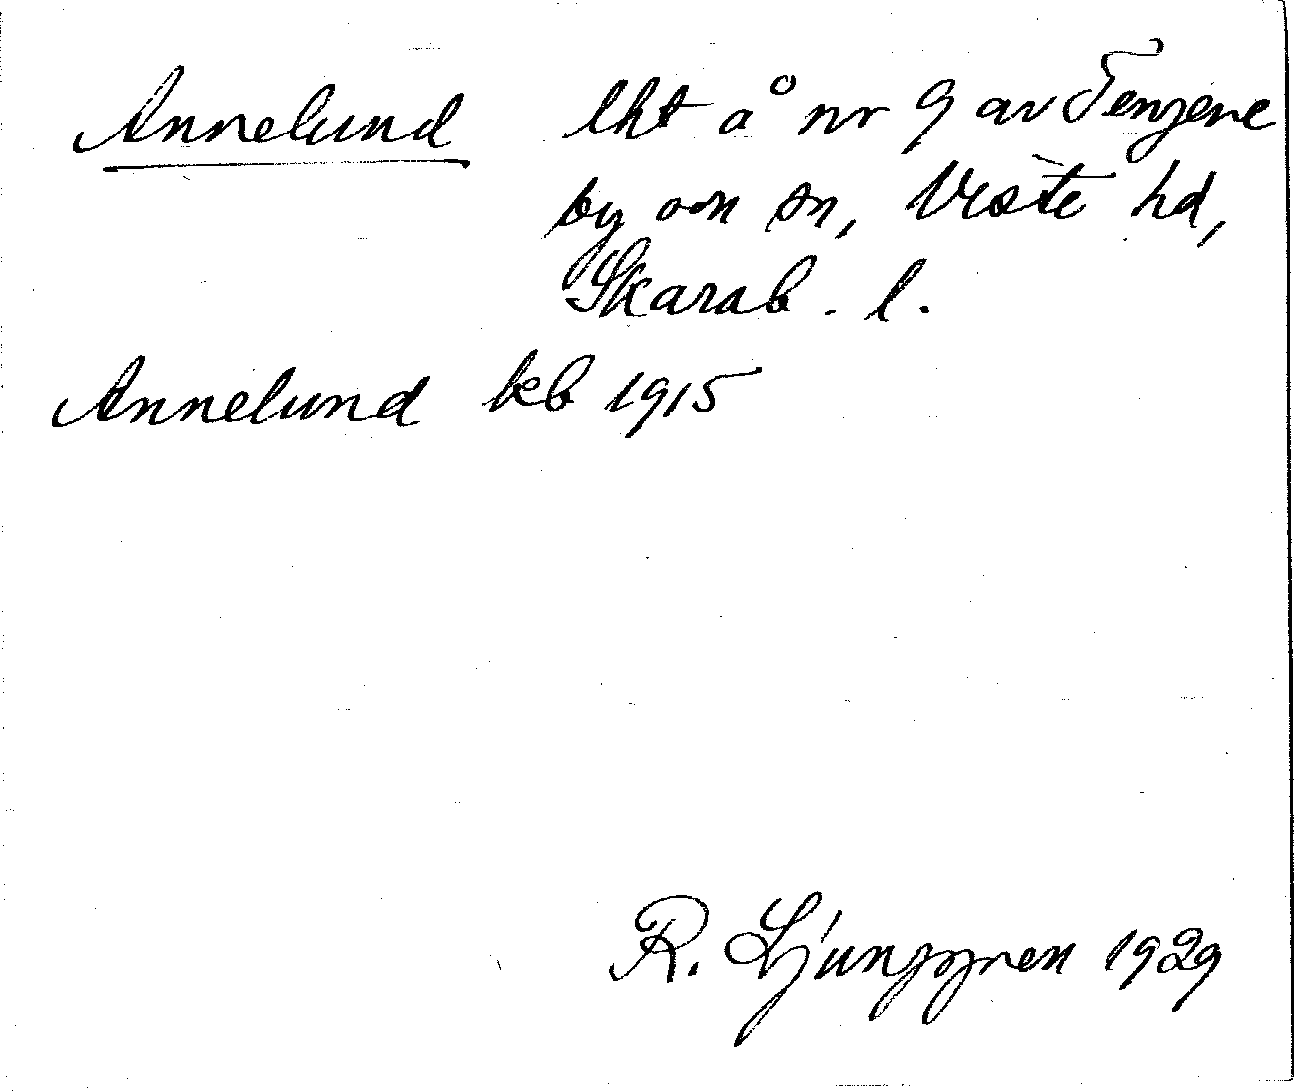 Annelund lht å nr 9 av Tengene
by och sn, Viste hd,
Skarab. l.
Annelund kb 1915
R. Ljunggren 1929